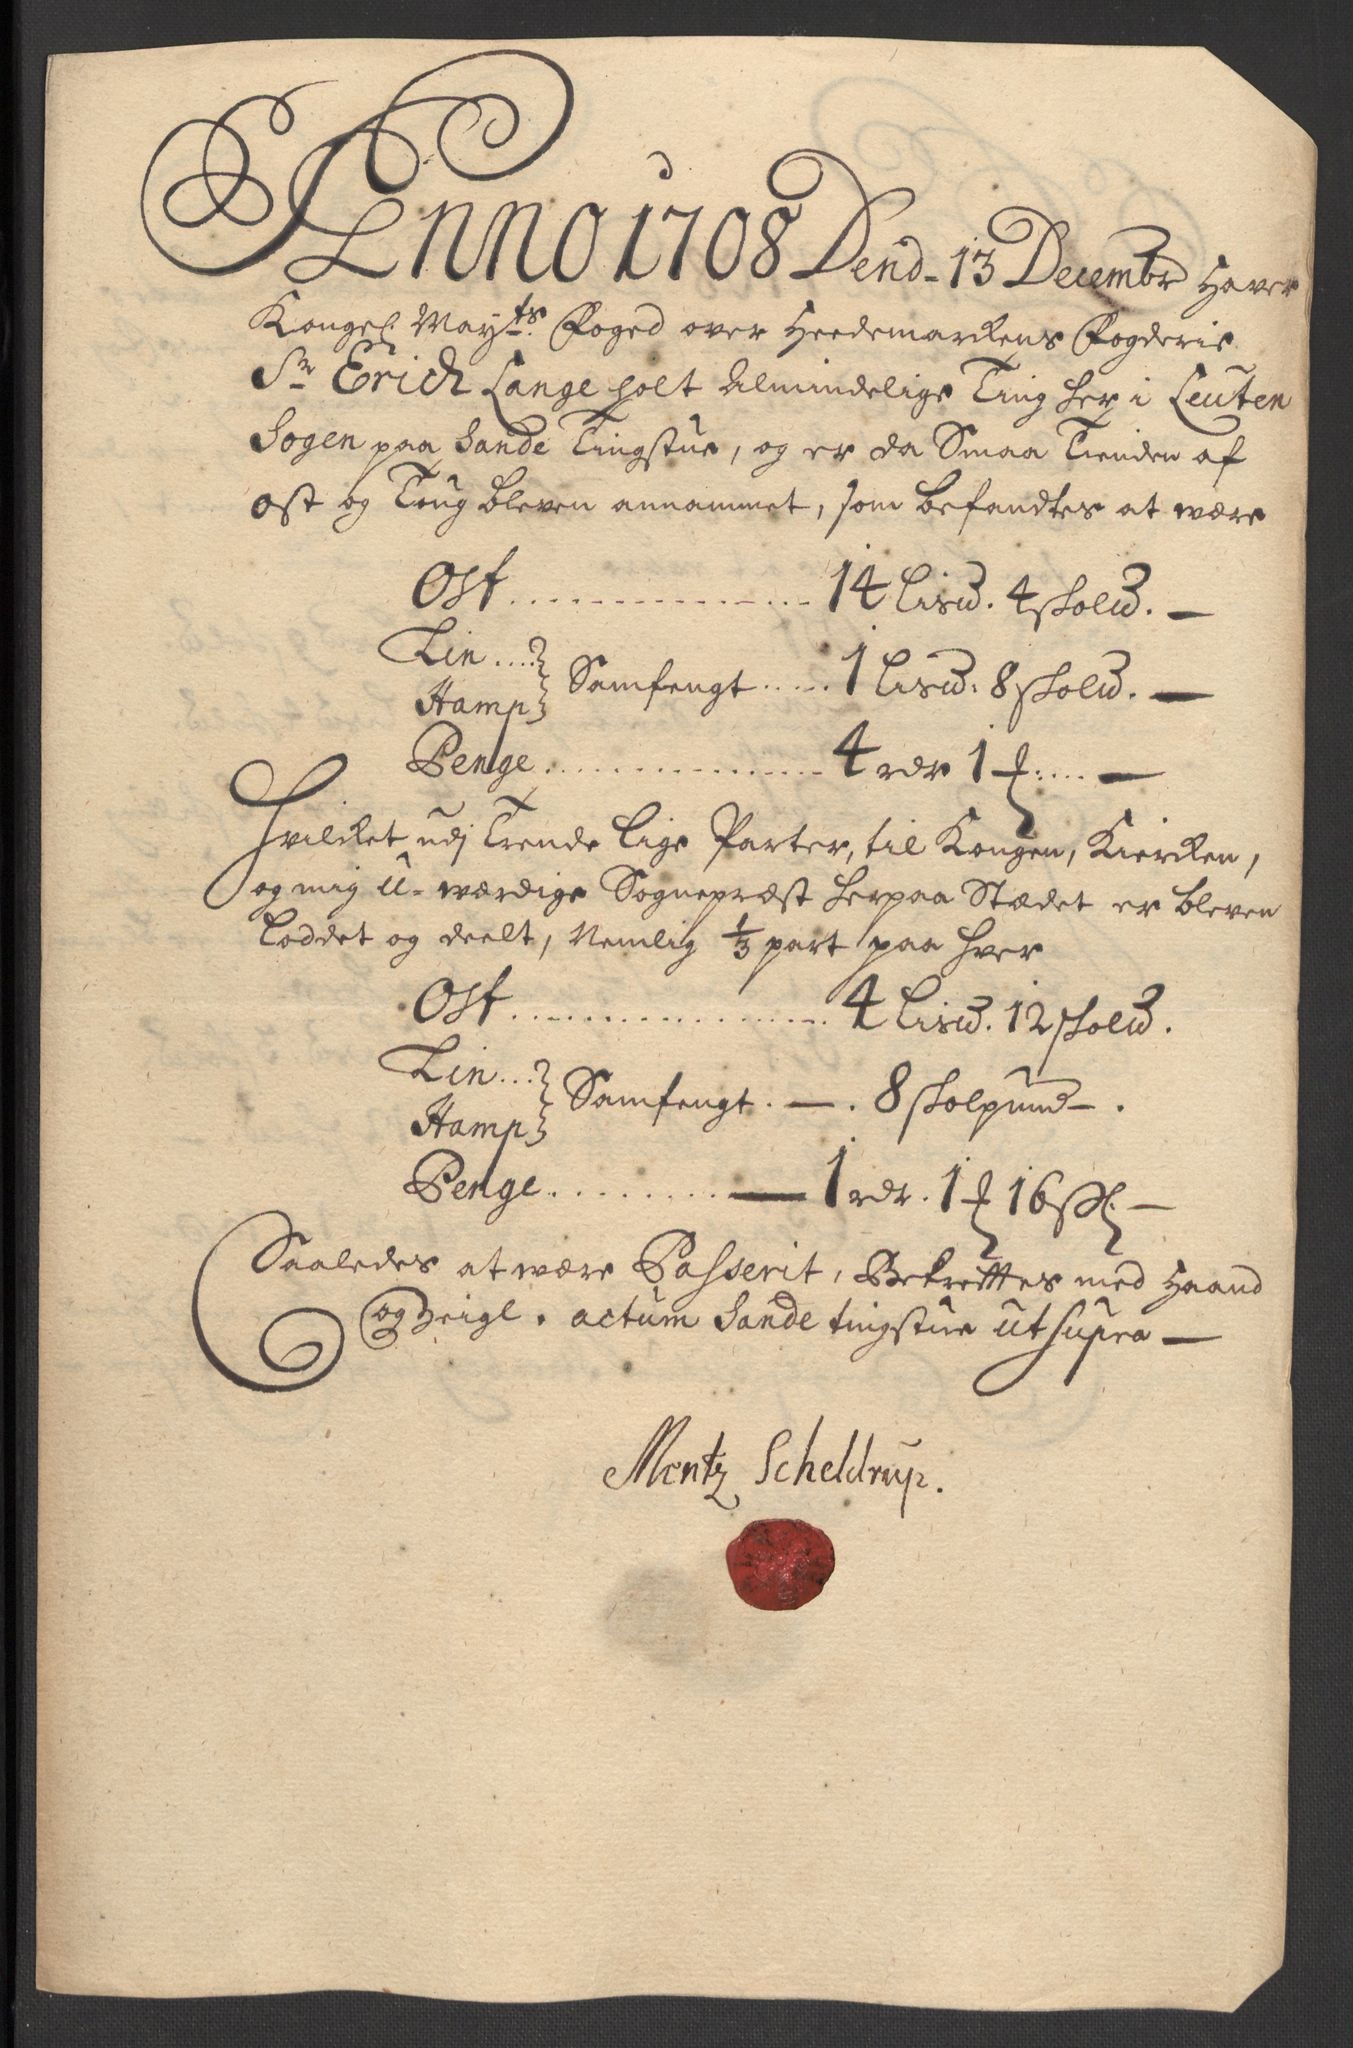 Anno 1708 Dend- 13 Decembr Haver
Kongel. Mayts. Foged over Heedemarckens Fogderie
Sr Erich Lange holt Almindelige Ting her i Leuten
Sogen paa Sande Tingstue, og er da Smaa Tienden af
ost og Toug bleven annammet, som befandtes at være
Ost.................14 Lisƚƀ. 4 skolƚƀ. —
Lin....}
Hamp} Samfengt.....1 Lisƚƀ. 8 skolƚƀ. —
Penge.................4 rdr 1 ƒ.....—
Hvilcket udj Trende lige Parter, til Kongen, Kiercken,
og mig U-værdige Sognepræst herpaa Stædet er bleven
loddet og deelt, Nemlig 1/3 part paa hver
Ost.................4 Lisƚƀ. 12 skolƚƀ.
Lin...}
Hamp} Samfengt. —. 8 skolpund—.
Penge.........—1 rdr. 1 ƒ 16 sk. —
Saaledes at være Passerit, Bekreftes med Haand
og Zeigl. actum Sande tingstue ut supra —
Mentz Scheldrup.